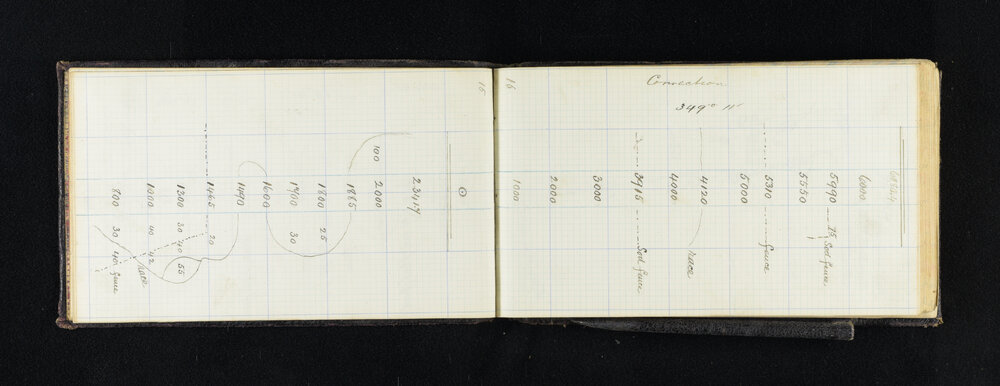 15
100
23417
2000
1865
1800 25
1700 30
1600
1490
1465 20
1300 30 40 55
1000 40 42 race
800 30 40 fence
16
Correction
349° 11'
6000
5990 15 Sod fence
5550
5310 fence
5000
4120 race
4000
3915 Sod fence
3000
2000
1000